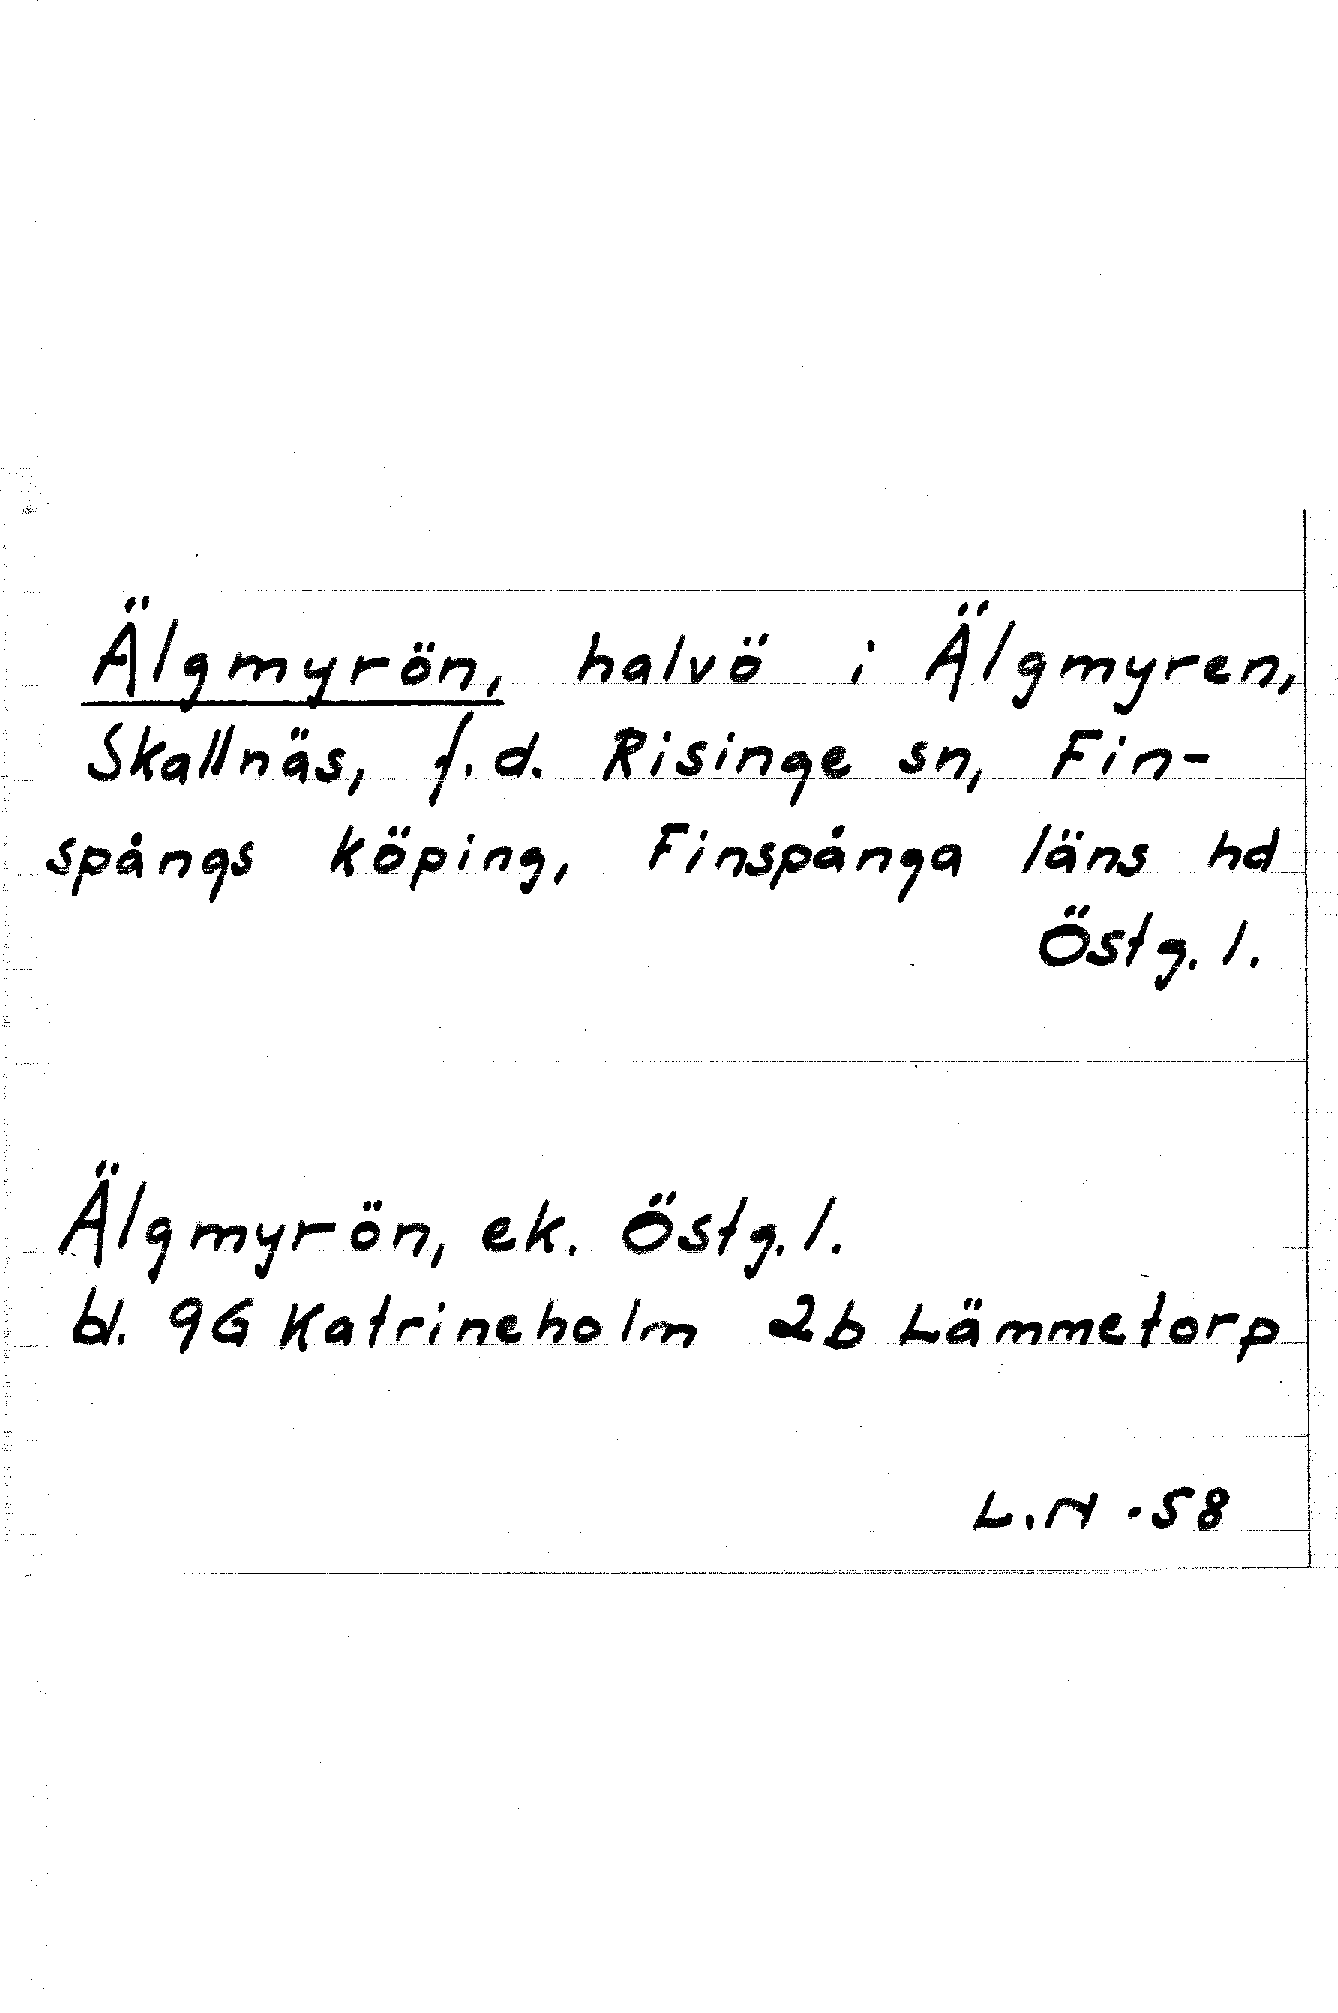 Älgmyrön, halvö i Älgmyren,
Skallnäs, f.d. Risinge sn, Fin-
spångs köping, Finspånga läns hd
Östg. l.
Älgmyrön, ek. Östg. l.
bl. 9G Katrineholm 2b Lämmetorp
L.N -58